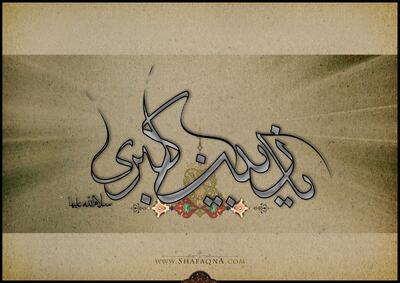 یا زینب کبری
سلام الله علیها
www.ShafaqnA.com